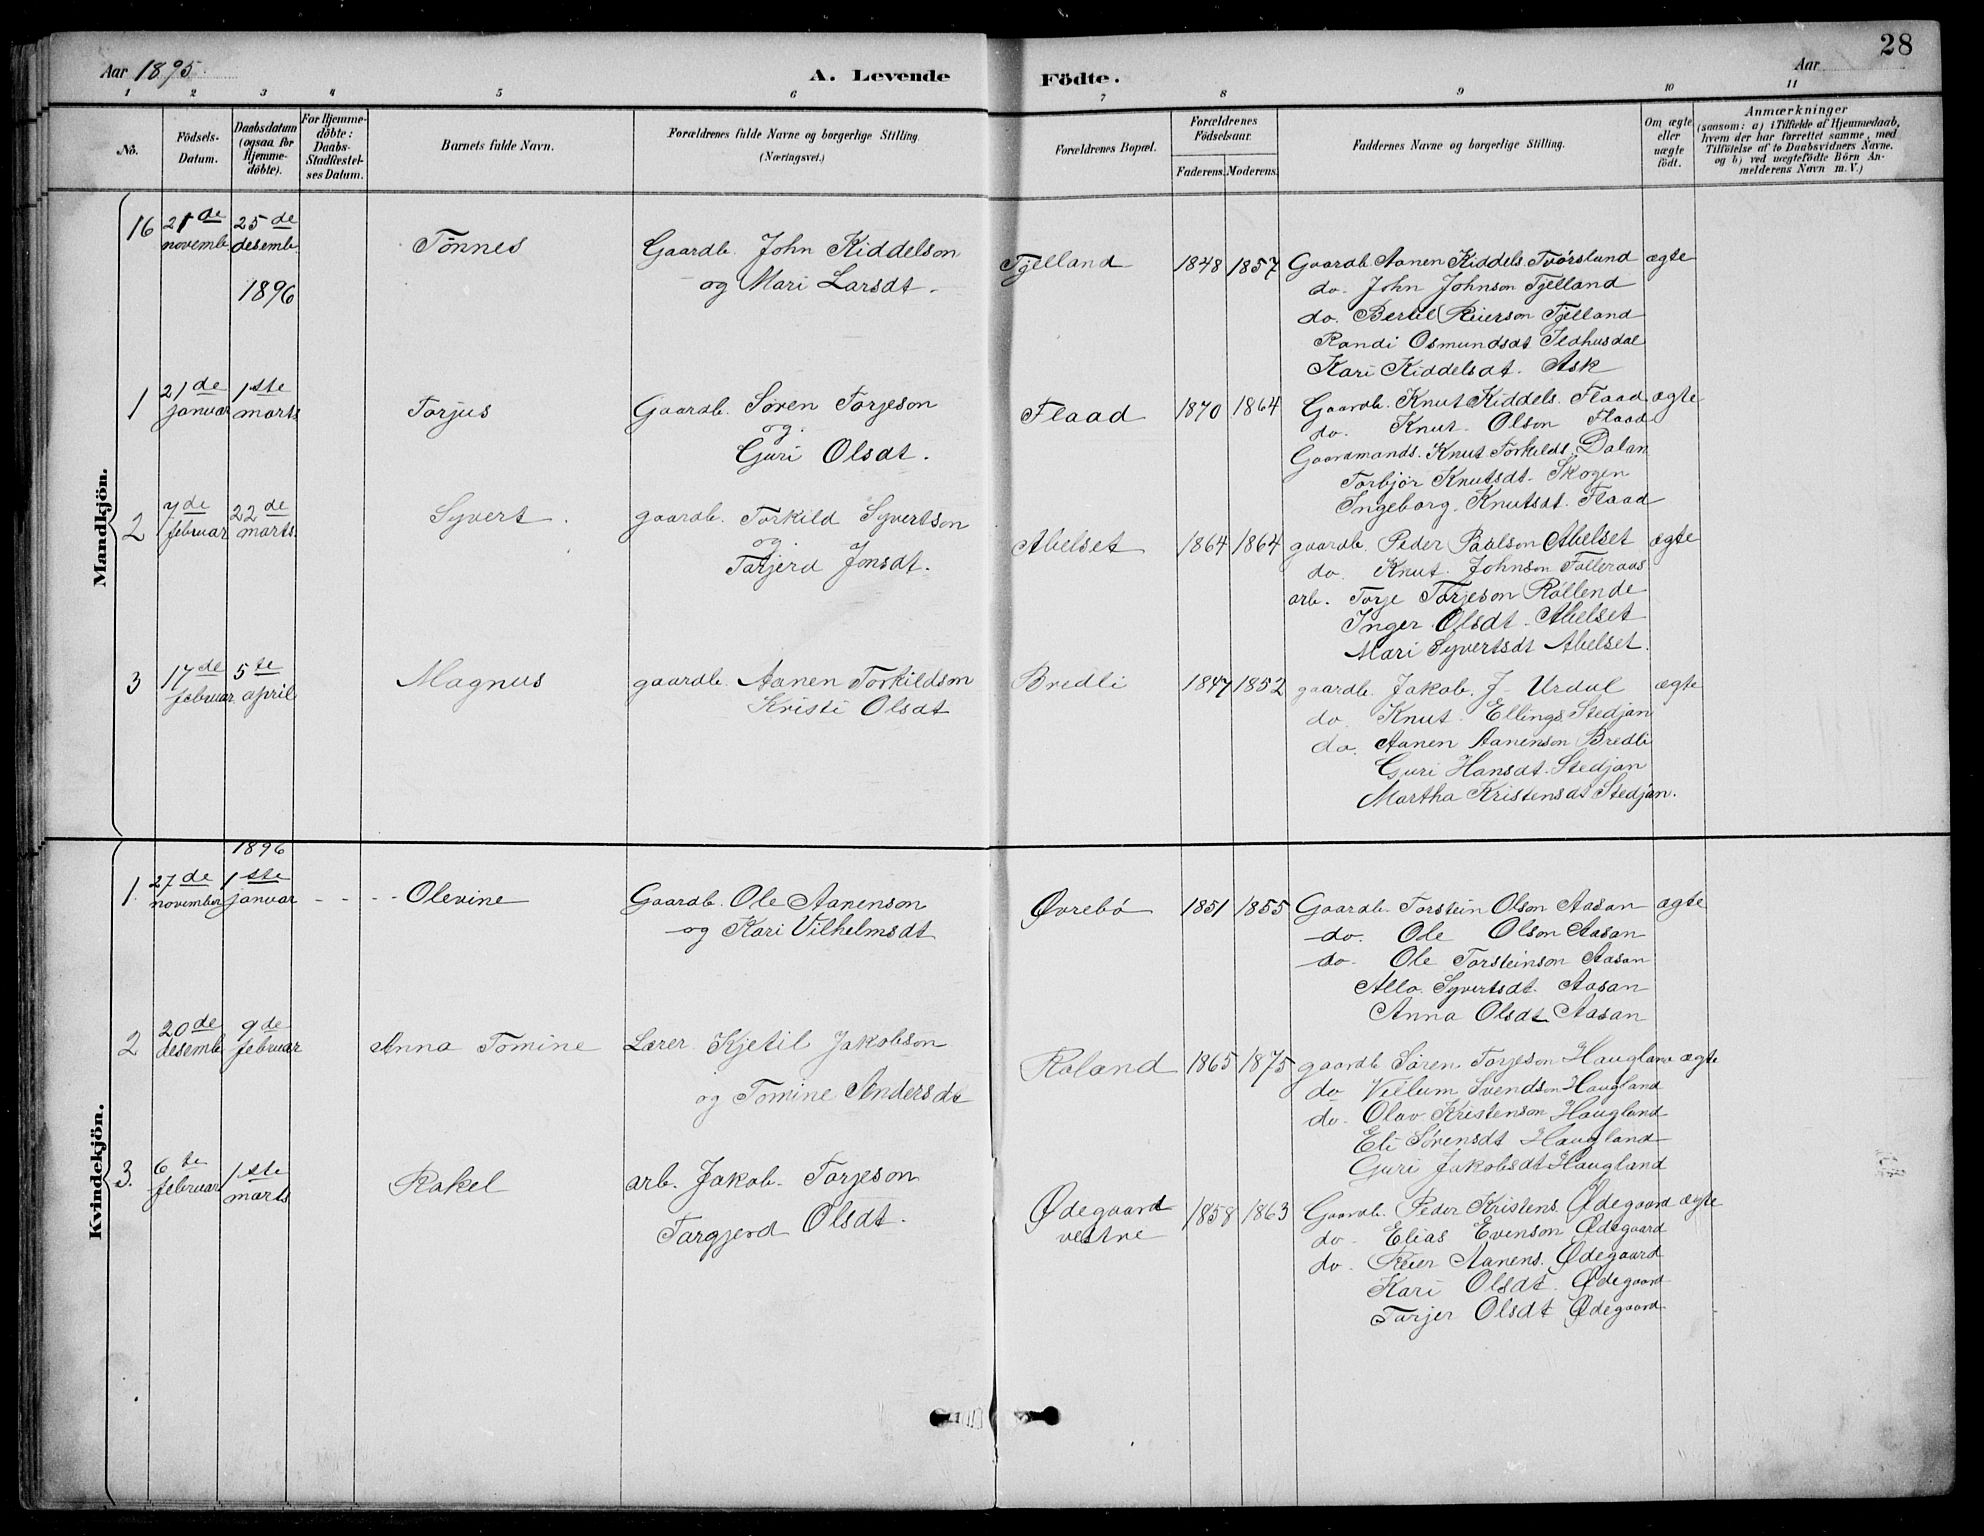 28
Aar 1895.
A. Levende Födte.
Aar
1 2 3 4 5 6 7 8 9 10 11
No.
Födsels-Datum.
Daabsdatum (ogsaa for Hjemme-döbte).
For Hjemme-döbte: Daabs-Stadfæstel-ses Datum.
Barnets fulde Navn.
Forældrenes fulde Navne og borgerlige Stilling.
(Næringsvei.)
Forældrenes Bopæl.
Forældrenes Födselsaar.
Faderens. Moderens.
Faddernes Navne og borgerlige Stilling.
Om ægte eller uægte födt.
Anmærkninger
(saasom: a) i Tilfælde af Hjemmedaab,
hvem der har forrettet samme, med
Tilföielse af to Daabsvidners Navne.
og b) ved uægtefödte Börn An-
melderens Navn m.V.)
Mandkjön.
16 21de novembr 25de desembr Tønnes Gaardb. John Kiddelson Tjelland 1848 1857 Gaardb Aanen Kiddels. Tvørslund ægte
og Mari Larsdt. do. John Johnson Tjelland
1896 do. Bertel Reierson Tjelland
Randi Osmundsdt Ildhusdal
Kari Kiddelsdt. Ask
1 21de januar 1ste marts Torjus Gaardb. Søren Torjeson Flaad 1870 1864 Gaardb. Knut Kiddels. Flaad ægte
og do. Knut Olson Flaad
Guri Olsdt. Gaardmands. Knut Torkilds. Dalan
Torbjør Knutsdt. Skogen
Ingeborg. Knutsdt. Flaad
2 7de februar 22de marts. Syvert. gaardb. Torkild Syvertson Abelset 1864 1864 gaardb. Peder Paulson Abelset ægte
og do. Knut. Johnson Falleraas
Tarjerd Jonsdt. arb. Torje Torjeson Røllende
Inger Olsdt. Abelset
Mari Syvertsdt Abelset.
3 17de februar 5te april Magnus gaardb. Aanen Torkildson Bredli 1847 1852 gaardb. Jakob. J. Urdal ægte
Kristi Olsdt do. Knut. Ellings. Stedjan
do. Aanen Aanenson Bredli
Guri Hansdt. Stedjan
Martha Kristensdt Stedjan.
Kvindekjön.
1896
1. 27de november 1ste januar - - - Olevine Gaardb. Ole Aanenson Øvrebö 1851 1855 Gaardb. Torstein Olson Aasan ægte
og Kari Vilhelmsdt do. Ole Olson Aasan
do. Ole Torsteinson Aasan
Allo. Syvertsdt. Aasan
Anna Olsdt Aasan
2 20de desembr 9de februar Anna Tomine Lærer Kjetil Jakobson Roland 1865 1875 gaardb Søren Torjeson Haugland ægte
og Tomine Andersdt do Villum Svendson Haugland
do. Olav Kristenson Haugland
Eli Sørensdt Haugland
Guri Jakobsdt Haugland
3. 6te februar 1ste marts Rakel arb. Jakob. Torjeson Ødegaard vestre 1858 1863 Gaardb. Peder Kristens. Ødegaard ægte
Targjerd Olsdt. do. Elias Evenson Ødegaard
do. Reier Aanens. Ødegaard
Kari Olsdt. Ødegaard
Tarjer Olsdt Ødegaard